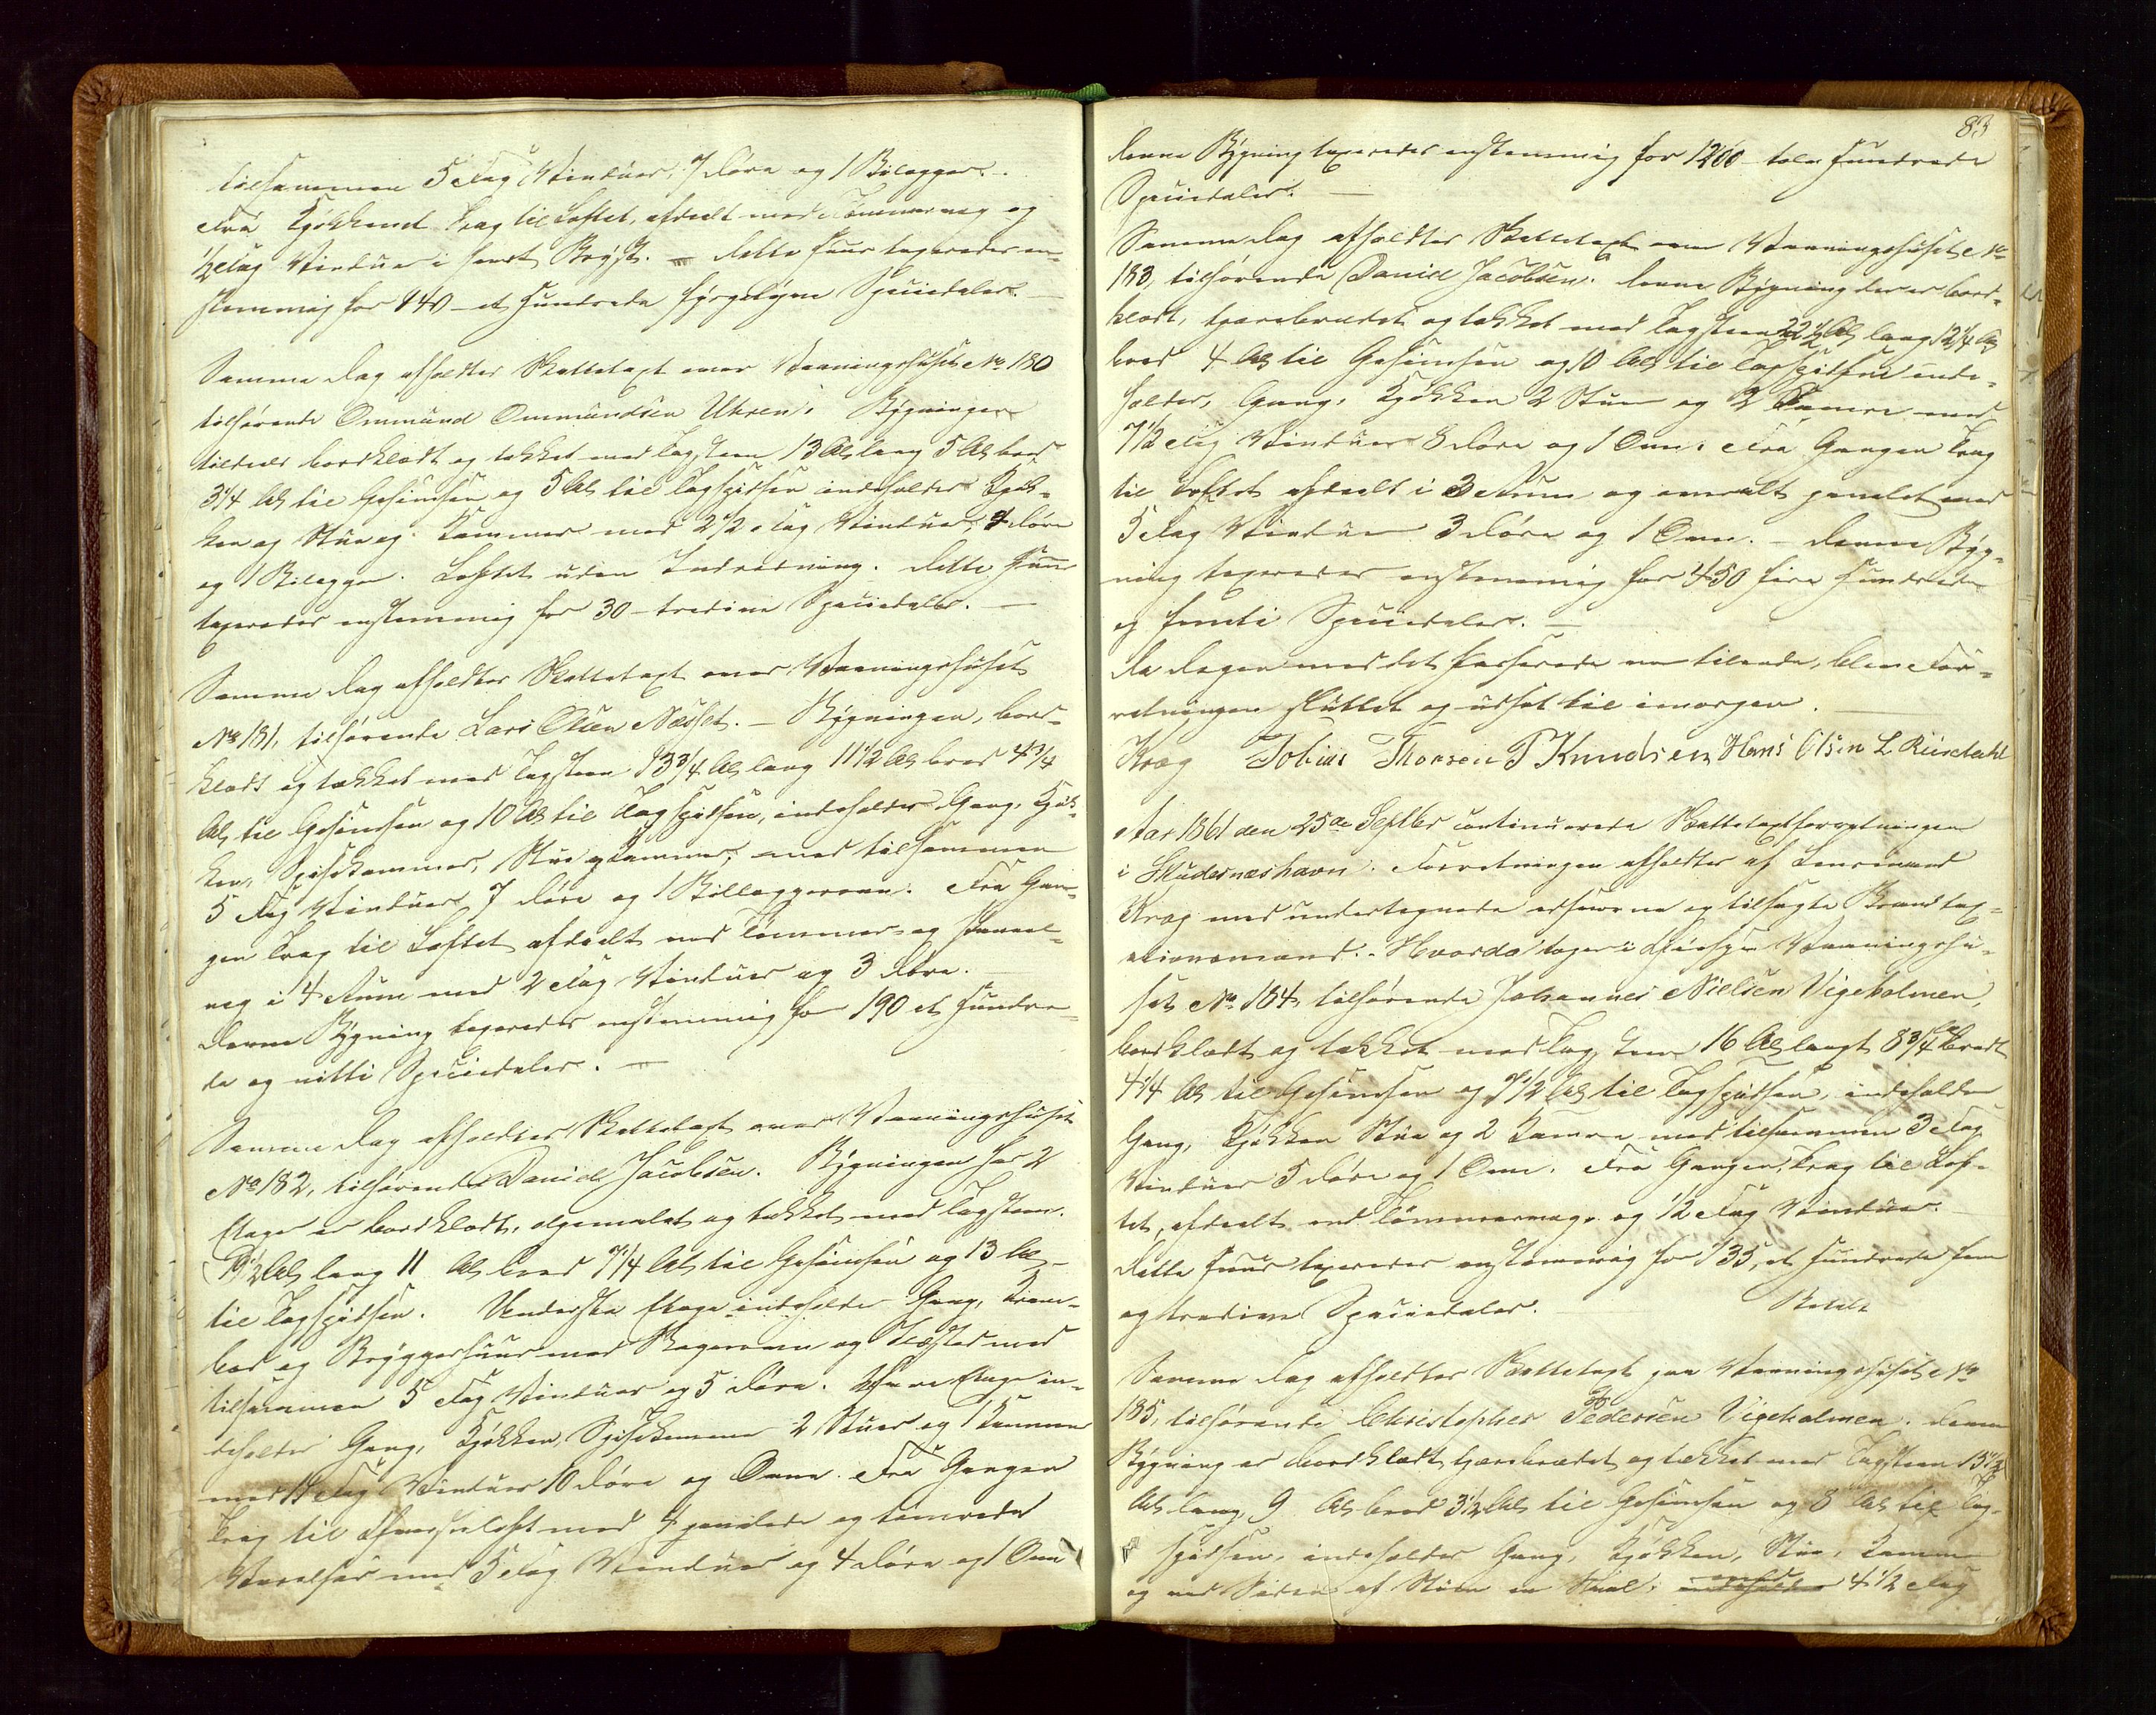 tilsammen 5 Fag Vinduer, 7 Döre og 1 Bilægger.
Fra Kjökkenet Trap til Loftet, afdeelt med Tömmervæg og
1/2 Fag Vindue i hvert Bryst. – Dette Huus taxeredes en-
stemmig for 140 – et Hundrede fyrgetyve Speciedaler. –
Samme Dag afholdtes Skattetaxt over Vaaningshuset No 180
tilhörende Ommund Ommundsen Uhren. Bygningen
tildeels bordklædt og tækket med Tagsteen 13 Al lang 5 Al bred
3 1/4 Al til Gesimsen og 5 Al til Tagspidsen indeholder Kjök-
ken og Stue og Kammer med 2 1/2 Fag Vinduer, 4 Döre
og 1 Bilægger. Loftet uden Indredning. Dette Huus
taxeredes enstemmig for 30 – tredive Speciedaler. –
Samme Dag afholdtes Skattetaxt over Vaaningshuset
No 181, tilhörende Lars Olsen Næsset. – Bygningen, bord-
klædt og tækket med Tagsteen 13 3/4 Al lang 11 1/2 Al bred 4 3/4
Al til Gesimsen og 10 Al til Tagspidsen, indeholder Gang, Kjök-
ken, Spisekammer, Stue og Kammer, med tilsammen
5 Fag Vinduer, 7 Döre og 1 Bilæggerovn. Fra Gan-
gen Trap til Loftet afdeelt med Tömmer- og Paneel-
væg i 4 Rum med 2 Fag Vinduer og 3 Döre. –
Denne Bygning taxeredes enstemmig for 190 et Hundre-
de og nitti Speciedaler. –
Samme Dag afholdtes Skattetaxt over Vaaningshuset
No 182, tilhörende Daniel Jacobsen. Bygningen har 2
Etager er bordklædt, oljemalet og tækket med Tagsteen.
19 1/2 Al lang 11 Al bred 7 1/4 Al til Gesimsen og 13 Al –
til Tagspidsen. Underste Etage indeholder Gang, Kram-
bod og Bryggerhuus med Bagerovn og Ildsted med
tilsammen 5 Fag Vinduer og 5 Döre. Övre Etage in-
deholder Gang, Kjökken, Spisekammer 2 Stuer og 1 Kammer
med 11 Fag Vinduer 10 Döre og Ovne. Fra Gangen
Trap til Qvistloft med 4 panelede og tömrede
Værelser med 5 Fag Vinduer og 4 Döre og 1 Ovn
83
denne Bygning taxeredes enstemmig for 1200 – tolv Hundrede
Speciedaler. –
Samme Dag afholdtes Skattetaxt over Vaaningshuset No
183, tilhörende Daniel Jacobsen. Denne Bygning der er bord-
klædt, tjærebrædet og tækket med Tagsteen 22 1/2 Al lang 12 1/4 Al
bred 4 Al til Gesimsen og 10 Al til Tagspidsen inde-
holder, Gang, Kjökken 2 Stuer og 2 Kamre med
7 1/2 Fag Vinduer 8 Döre og 1 Ovn. Fra Gangen Trap
til Loftet afdeelt i 3 Rum og overalt panelet med
5 Fag Vinduer 3 Döre og 1 Ovn. – Denne Byg-
ning taxeredes enstemmig for 450 fire Hundrede
og femti Speciedaler. –
Da Dagen med det Passerede var tilende, blev For-
retningen sluttet og udsat til imorgen. –
Krag Tobias Thorsen P Knudsen Hans Olsen L Riisdahl
Aar 1861 den 25de Septbr continuerede Skattetaxtforretningen
i Skudesnæshavn. Forretningen afholdtes af Lensmand
Krag med undertegnede edsvorne og tilsagte Brandtax-
ationsmænd. – Hvorda toges i Öiesyn Vaaningshu-
set No 184 tilhörende Johannes Nielsen Vigeholmen,
bordklædt og tækket med Tagsteen 16 Al langt 8 3/4 Al bredt
4 1/4 Al til Gesimsen og 7 1/2 Al til Tagspidsen, indeholder
Gang, Kjökken Stue og 2 Kamre med tilsammen 3 Fag
Vinduer 5 Döre og 1 Ovn. Fra Gangen Trap til Lof-
tet, afdeelt med Tömmervæg og 1/2 Fag Vindue. –
Dette Huus taxeredes enstemmig for 135, et Hundrede fem
og tredive Speciedaler. – Betalt
Samme Dag afholdtes Skattetaxt paa Vaaningshuset No
185, tilhörende Christopher Pedersen Vigeholmen. Denne
Bygning er bordklædt tjærebrædet og tækket med Tagsteen 15 1/2
Al lang, 9 Al bred 3 1/2 Al til Gesimsen og 8 Al til Tag-
spidsen, indeholder Gang, Kjökken, Stue, Kammer
og ved Siden af Stuen en Skuul, med 4 1/2 Fag